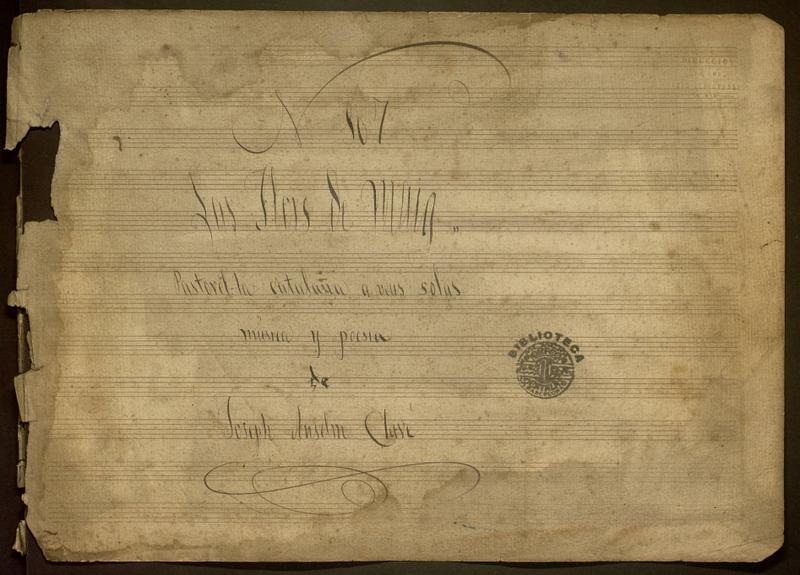 N 107
Las Flors de Maig
Pastorel-la catalana a veus solas
música y poesia
de
Joseph Anselm Clavé
BIBLIOTECA